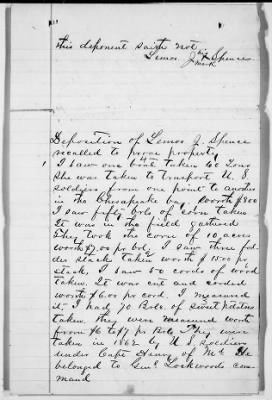 this deponent saith not.
Lemos. J his X mark Spence
Deposition of Lemos J. Spence
recalled to prove property
1 I saw one boat taken 40 Tons
She was taken to transport U. S.
soldiers, from one point to another
in the Chesapeake bay, worth $800
I saw fifty brls of corn taken
It was in the field gathered
They took the corne of 10 acres
worth $7,00 pr brl, I saw three fod
der stacks taken worth $15.00 pr
stack, I saw 50 cords of wood
taken, It was cut and corded
worth $6.00 per cord. I measured
it, I had 70 Brls. of sweet potatoes
taken, they were measured worth
from $6 to $7 pr Brls They were
taken in 1862 by U. S. soldiers
under Capt of Md He
belonged to Genl Lockwoods com
mand